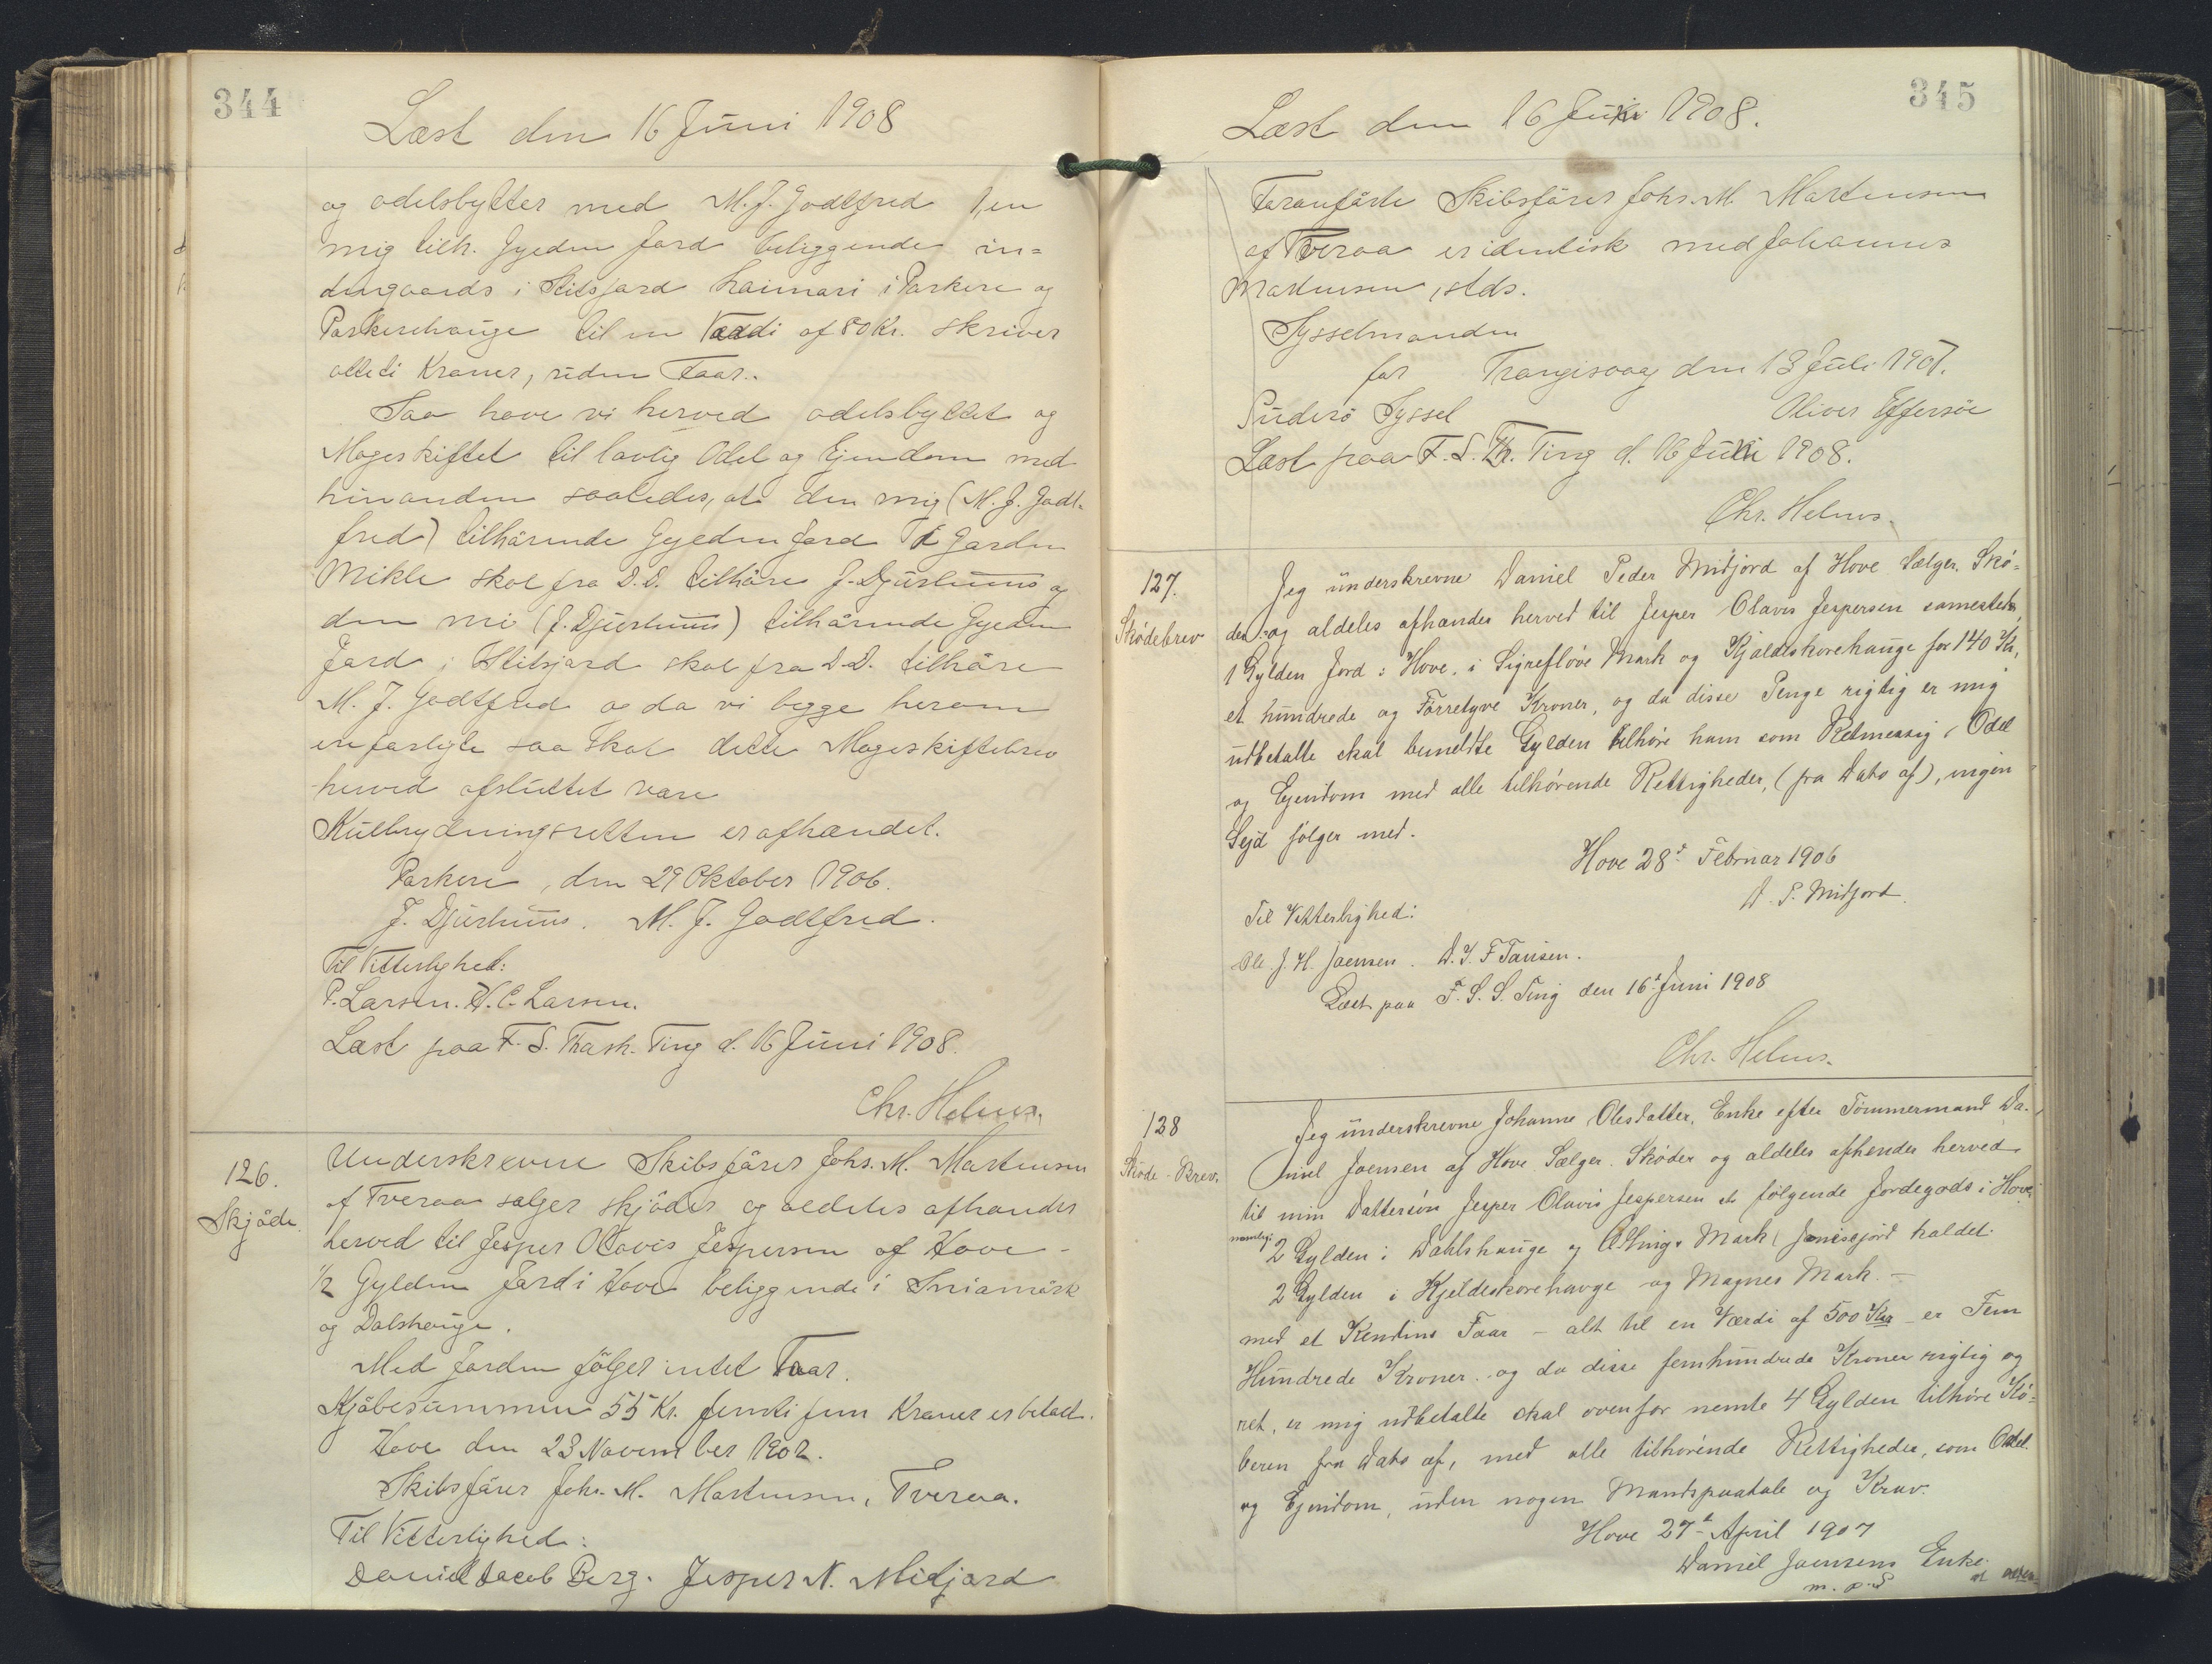 344
Læst den 16 Juni 1908
og odelsbytter med M. J. Godtfred 1, en
mig tilh. Gylden Jord beliggende in=
dengaards i Stitsjord haimari i Porkere og
Porkerehauge til en Værdi af 80 Kr. skriver
otteti Kroner, uden Faar.
Saa have vi herved odelsbyttet og
Mageskiftet til lovlig Odel og Ejendom med
hinanden saaledes, at den mig (M. J. Godt-
fred) tilhørende Gylden Jord i Garden
Mikle skal fra D.D. tilhøre J. Djurhuus og
den mi (J. Djurhuus) tilhørende Gylden
Jord i Stitsjord skal fra D.D. tilhøre
M. J. Godtfred og da vi begge herom
ere forligte saa skal dette Mageskiftebrev
herved afsluttet være
Kulbrydningsretten er afhændet.
Porkere, den 29 Oktober 1906.
J. Djurhuus. M. J. Godtfred.
Til Vitterlighed:
P. Larsen. H. C. Larsen.
Læst paa F. S. Ting d. 16 Juni 1908.
Chr. Helms.
126.
Skjøde.
Underskrevne Skibsfører Johs. M. Mortensen
af Tveraa sælger skjøder og aldeles afhænder
herved til Jesper Olavis Jespersen af Hove -
1/2 Gylden Jord i Hove beliggende i
og Dalshauge.
Med Jorden følger intet Faar.
Kjøbesummen 55 Kr. femti fem Kroner er betalt.
Hove den 23 November 1902.
Skibsfører Johs. M. Mortensen, Tveraa.
Til Vitterlighed:
Daniel Jacob Berg. Jesper N. Midjord
345
Læst den 16 Juni 1908.
Foranførte Skibsfører Johs. M. Mortensen
af Tveraa er identisk med Johannes
Mortensen, stds.
Sysselmanden
for Trangisvaag den 13 Juli 1907.
Suderø Syssel Oliver Effersøe
Læst paa F. S. Th. Ting d. 16 Juni 1908.
Chr. Helms.
127.
Skødebrev
Jeg underskrevne Daniel Peder Midjord af Hove Sælger, Skø-
der og aldeles afhænder herved til Jesper Olavis Jespersen samesteds,
1 Gylden Jord i Hove, i Mark og Kjaldeskorehauge for 140 Kr,
et hundrede og Førretyve Kroner, og da disse Penge rigtig er mig
udbetalte skal bemeldte Gylden tilhøre ham som Retmessig, Odel
og Ejendom med alle tilhørende Rettigheder, (fra Dato af), ingen
Sejd følger med.
Hove 28d. Februar 1906
D. P. Midjord.
Til Vitterlighed:
Ole J. H. Joensen. D. J. F Tausen.
Læst paa F. S. S. Ting den 16d. Juni 1908
Chr. Helms.
128
Skøde-Brev.
Jeg underskrevne Johanne Olesdatter, Enke efter Tømmermand Da-
niel Joensen af Hove Sælger. Skøder og aldeles afhender herved
til min Dattersøn Jesper Olavis Jespersen de følgende Jordegods i Hove,
nemlig:
2 Gylden i Dahlshauge og Mark, haldet
2 Gylden i Kjeldeskorehauge og Magnes Mark. -
med et Kendins Faar - alt til en Værdi af 500 Kr - er Fem
Hundrede Kroner. og da disse femhundrede Kroner rigtig og
ret, er mig udbetalte skal ovenfor nemte 4 Gylden tilhøre Kø-
beren fra Dato af, med alle tilhørende Rettigheder, som Odel
og Ejendom, uden nogen Mandspaatale og Krav.
Hove 27d. April 1907
Daniel Joensens Enke
m. p. P